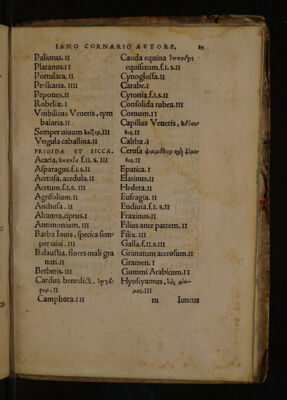 IANO CORNARIO AVTORE. 89
Palianus. II
Platanus. II
Portulaca. II
Persicaria. IIII
Pepones. II
Robelix. I
Vmbilicus Veneris, cym
balaria. II
Semper uiuum III
Vngula caballina. II
FRIGIDA ET SICCA.
Acacia, f. II. s. III
Asparagus. f. I. s. II
Acetosa, acedula. II
Acetum. f. I. s. III
Agrifolium. II
Anchusa. II
Alcanna, ciprus. I
Antimonium. III
Barba Iouis, species sem
per uiui. III
Balaustia, flores mali gra
nati. II
Berberis. III
Cardus benedict.
II
Camphora. III
Cauda equina
equisetum. f. I. s. II
Cynoglossa. II
Carabe. I
Cytonia. f. I. s. II
Consolida rubea. III
Cornum. II
Capillus Veneris,
II
Caltha. I
Cerusa
II
Epatica. I
Elatinus. II
Hedera. II
Eufragia. II
Endiuia. f. I. s. II
Fraxinus. II
Filius ante patrem. II
Filix. III
Galla. f. II. s. III
Granatum acetosum. II
Gramen. I
Gummi Arabicum. II
Hyoscyamus, ὑὸς κύα-
μος. III
m Iuncus